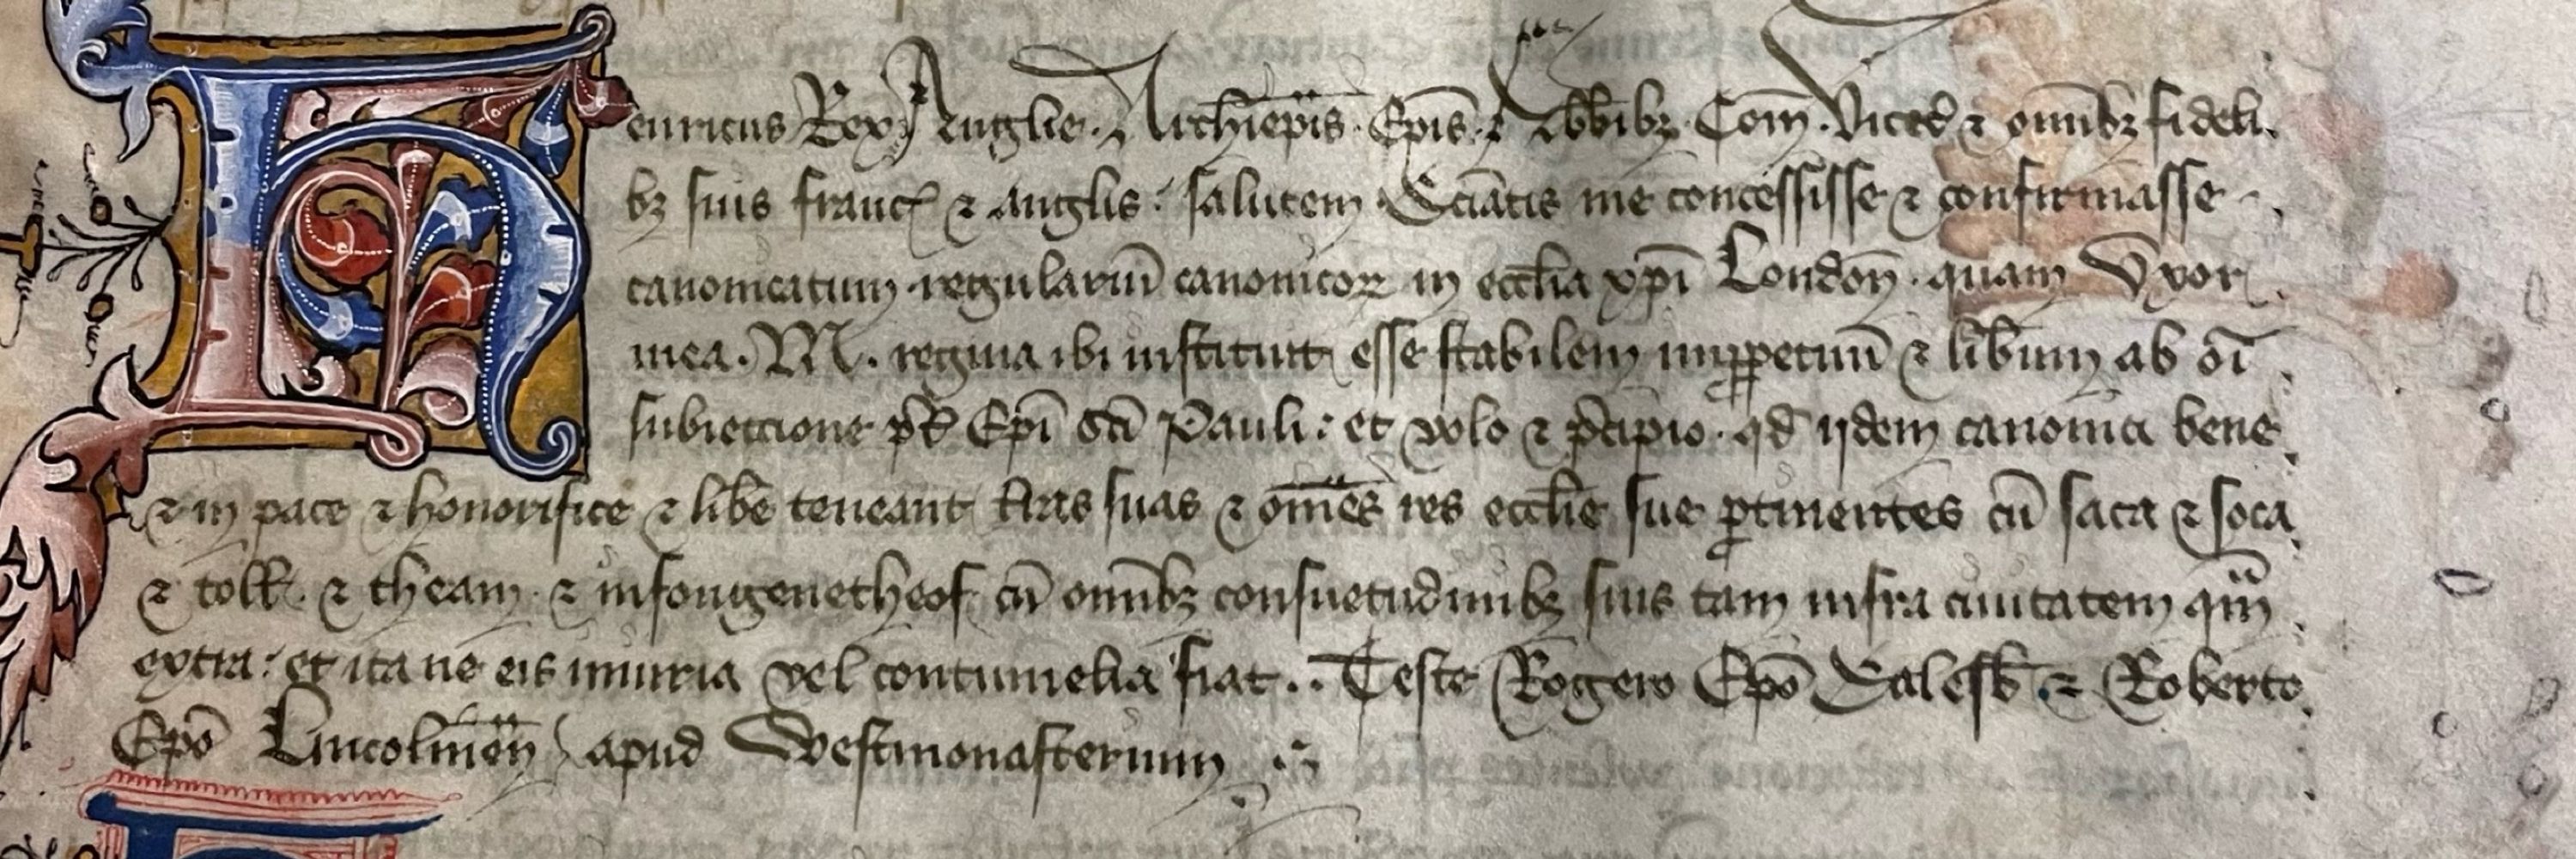 Henricus Rex Anglie. Archiep̄is. Ep̄is. ⁊ Abb̄ibꝫ. Com̄. Vicec̄ ⁊ om̄ibꝫ fideli
bꝫ suis franc̄ ⁊ anglis: salutem Sciātis me concessisse ⁊ confirmasse
canonicatum regulariū canonicoꝝ in eccl̄ia xp̄i London̄. quam Vxor
mea. M. regina ibi instituit esse stabilem inꝑpetuū ⁊ lib̄um ab oī
subieccione p̄t̄ Ep̄i sc̄i Pauli: et volo ⁊ p̄cipio. qd̄ ijdem canonici bene
⁊ in pace ⁊ honorifice ⁊ lib̄e teneant t̄ras suas ⁊ om̄es res eccl̄ie sue ꝑtinentes cū saca ⁊ soca
⁊ toll̄. ⁊ theam. ⁊ infongenetheof cū om̄ibꝫ consuetudinibꝫ suis tam infra ciuitatem qm̄
extra: et ita ne eis iniuria vel contumelia fiat.. Teste Rogero Ep̄o Salesb̄. ⁊ Roberto
Ep̄o Lincolnien̄ apud Westmonasterium